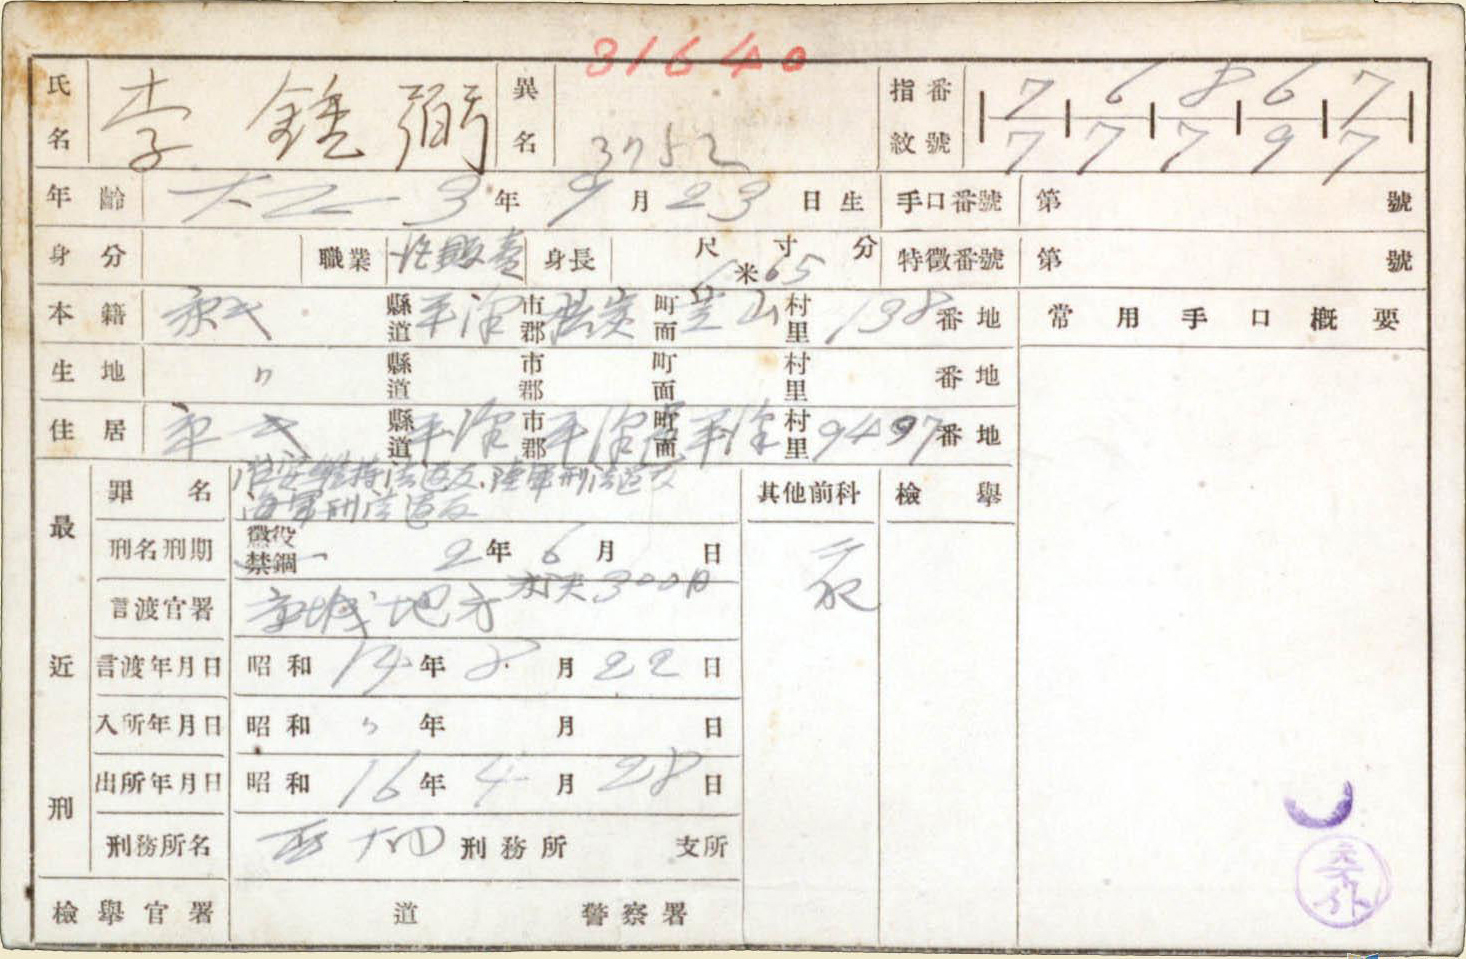 31640
氏名 李鍾弼 異名 3752 指紋番號 7 6 8 6 7
7 7 7 9 7
年齡 大正 3年 9月 23日生 手口番號 第 號
身分 職業 販賣 身長 尺 寸 分 米 65 特徵番號 第 號
本籍 縣道 平澤 市郡 町面 山 村里 138 番地 常用手口概要
生地 〃 縣道 市郡 町面 村里 番地
住居 縣道 平澤 市郡 平澤 町面 平澤 村里 番地
最近刑
罪名 治安維持法違反、陸軍刑法違反
海軍刑法違反
其他前科 檢擧
刑名刑期 懲役禁錮 2年 6月 日
300日
言渡官署 京城地方
言渡年月日 昭和 14年 8月 22日
入所年月日 昭和 〃年 月 日
出所年月日 昭和 16年 4月 28日
刑務所名 西大門 刑務所 支所
檢擧官署 道 警察署